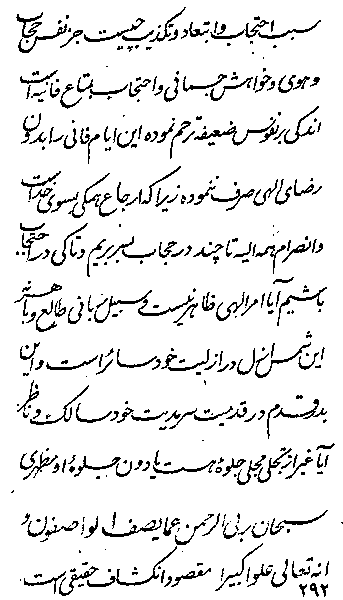 سبب احتجاب و ابتعاد و تکذیب چیست جز نفس حجاب
و هوی و خواهش جسمانی و احتجاب بمتاع فانیه است
اندکی بر نفوس ضعیفه ترحم نموده این ایام فانی را بدون
رضای الهی صرف ننموده زیرا که ارجاع همکی بسوی خداست
و انصرام همه الیه تا چند در حجاب بسر بریم و تا کی در احتجاب
باشیم آیا امر الهی ظاهر نیست و سبیل سبانی طالع و باهر نه
این شمس ازل در ازلیت خود سائر است و این
بدر قدم در قدمیت سرمدیت خود سالک و ناظر
آیا غیر از تجلی مجلی جلوهٔ هست یا دون جلوهٔ او مظهری
سبحان ربی الرحمن عما یصف الواصفون و
انه تعالی علوا کبیرا مقصود انکشاف حقیقی است
۲۹۲